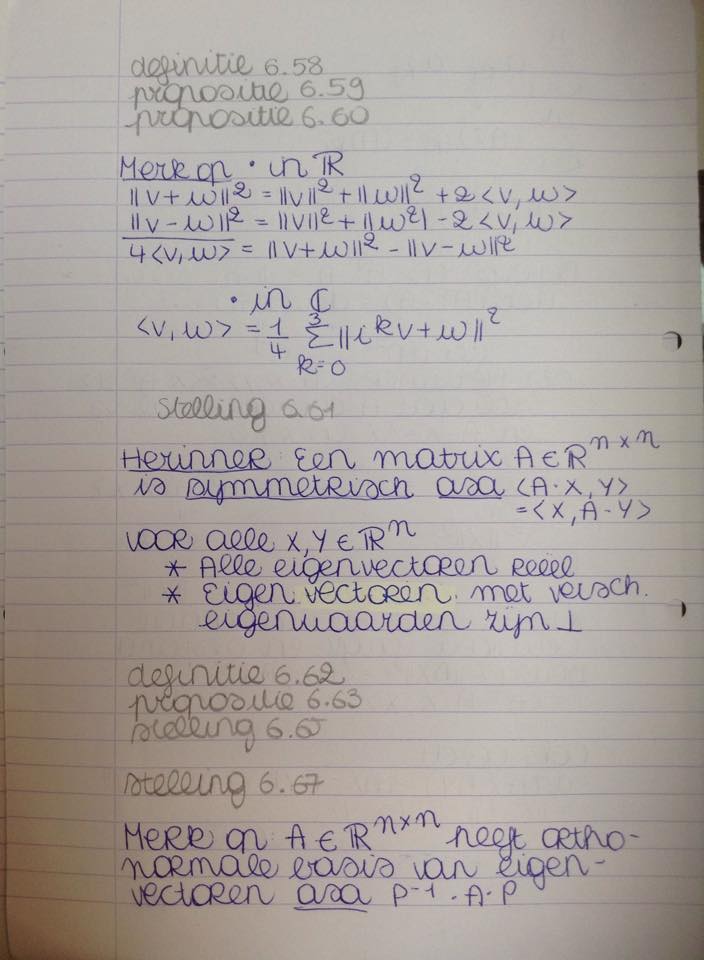 definitie 6.58
propositie 6.59
propositie 6.60
Merk op • in ℝ
||v+w||² = ||v||² + ||w||² + 2<v,w>
||v-w||² = ||v||² + ||w²| - 2<v,w>
4<v,w> = ||v+w||² - ||v-w||²
• in ℂ
<v,w> = 1/4 3∑k=0 ||iᵏv+w||²
stelling 6.61
Herinner Een matrix A∈ℝⁿˣⁿ
is symmetrisch asa <A·X,Y>
=<X,A·Y>
voor alle X,Y∈ℝⁿ
* Alle eigenvectoren reëel
* Eigenvectoren met versch.
eigenwaarden zijn ⊥
definitie 6.62
propositie 6.63
stelling 6.65
stelling 6.67
Merk op A∈ℝⁿˣⁿ heeft ortho-
normale basis van eigen-
vectoren asa P⁻¹·A·P